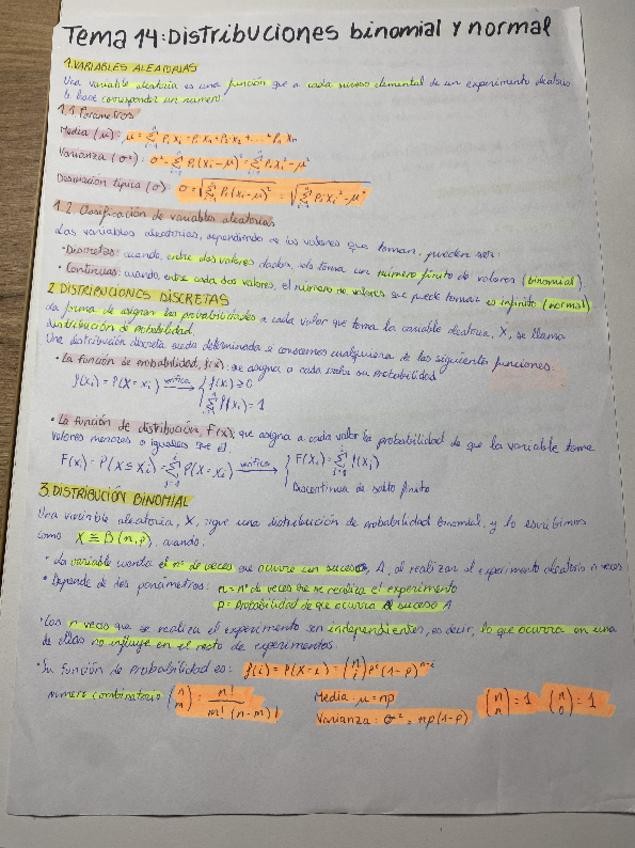 Tema 14: Distribuciones binomial y normal
1. VARIABLES ALEATORIAS
Una variable aleatoria es una función que a cada suceso elemental de un experimento aleatorio
le hace corresponder un número.
1.1. Parámetros
Media (μ): μ = Σ Pi Xi = P1 X1 + P2 X2 + ... + Pn Xn
Varianza (σ²): σ² = Σ Pi (Xi - μ)² = Σ Pi Xi² - μ²
Desviación típica (σ): σ = √(Σ Pi (Xi - μ)²) = √(Σ Pi Xi² - μ²)
1.2. Clasificación de variables aleatorias
Las variables aleatorias, dependiendo de los valores que toman, pueden ser:
· Discretas: cuando, entre dos valores dados, solo toma un número finito de valores (binomial).
· Continuas: cuando, entre cada dos valores, el número de valores que puede tomar es infinito (normal)
2. DISTRIBUCIONES DISCRETAS
La forma de asignar las probabilidades a cada valor que toma la variable aleatoria, X, se llama
distribución de probabilidad.
Una distribución discreta queda determinada si conocemos cualquiera de las siguientes funciones:
· La función de probabilidad, f(x): se asigna a cada valor su probabilidad
f(xi) = P(X = xi) verifica → { f(x) ≥ 0
Σ f(xi) = 1
· La función de distribución, F(x), que asigna a cada valor la probabilidad de que la variable tome
valores menores o iguales que él.
F(xi) = P(X ≤ xi) = Σ P(X = xi) verifica → { F(xi) = Σ f(xj)
Discontinua de salto finito
3. DISTRIBUCIÓN BINOMIAL
Una variable aleatoria, X, sigue una distribución de probabilidad binomial, y lo escribimos
como X ≅ B(n, p), cuando:
· La variable cuenta el nº de veces que ocurre un suceso, A, al realizar el experimento aleatorio n veces
· Depende de dos parámetros: n = nº de veces que se realiza el experimento
p = Probabilidad de que ocurra el suceso A
· Las n veces que se realiza el experimento son independientes, es decir, lo que ocurra en una
de ellas no influye en el resto de experimentos.
· Su función de probabilidad es: f(i) = P(X = i) = (n i) pⁱ (1-p)ⁿ⁻ⁱ
número combinatorio (n m) = n! / m! (n-m)! Media: μ = np (n n) = 1 (n 0) = 1
Varianza: σ² = np(1-p)